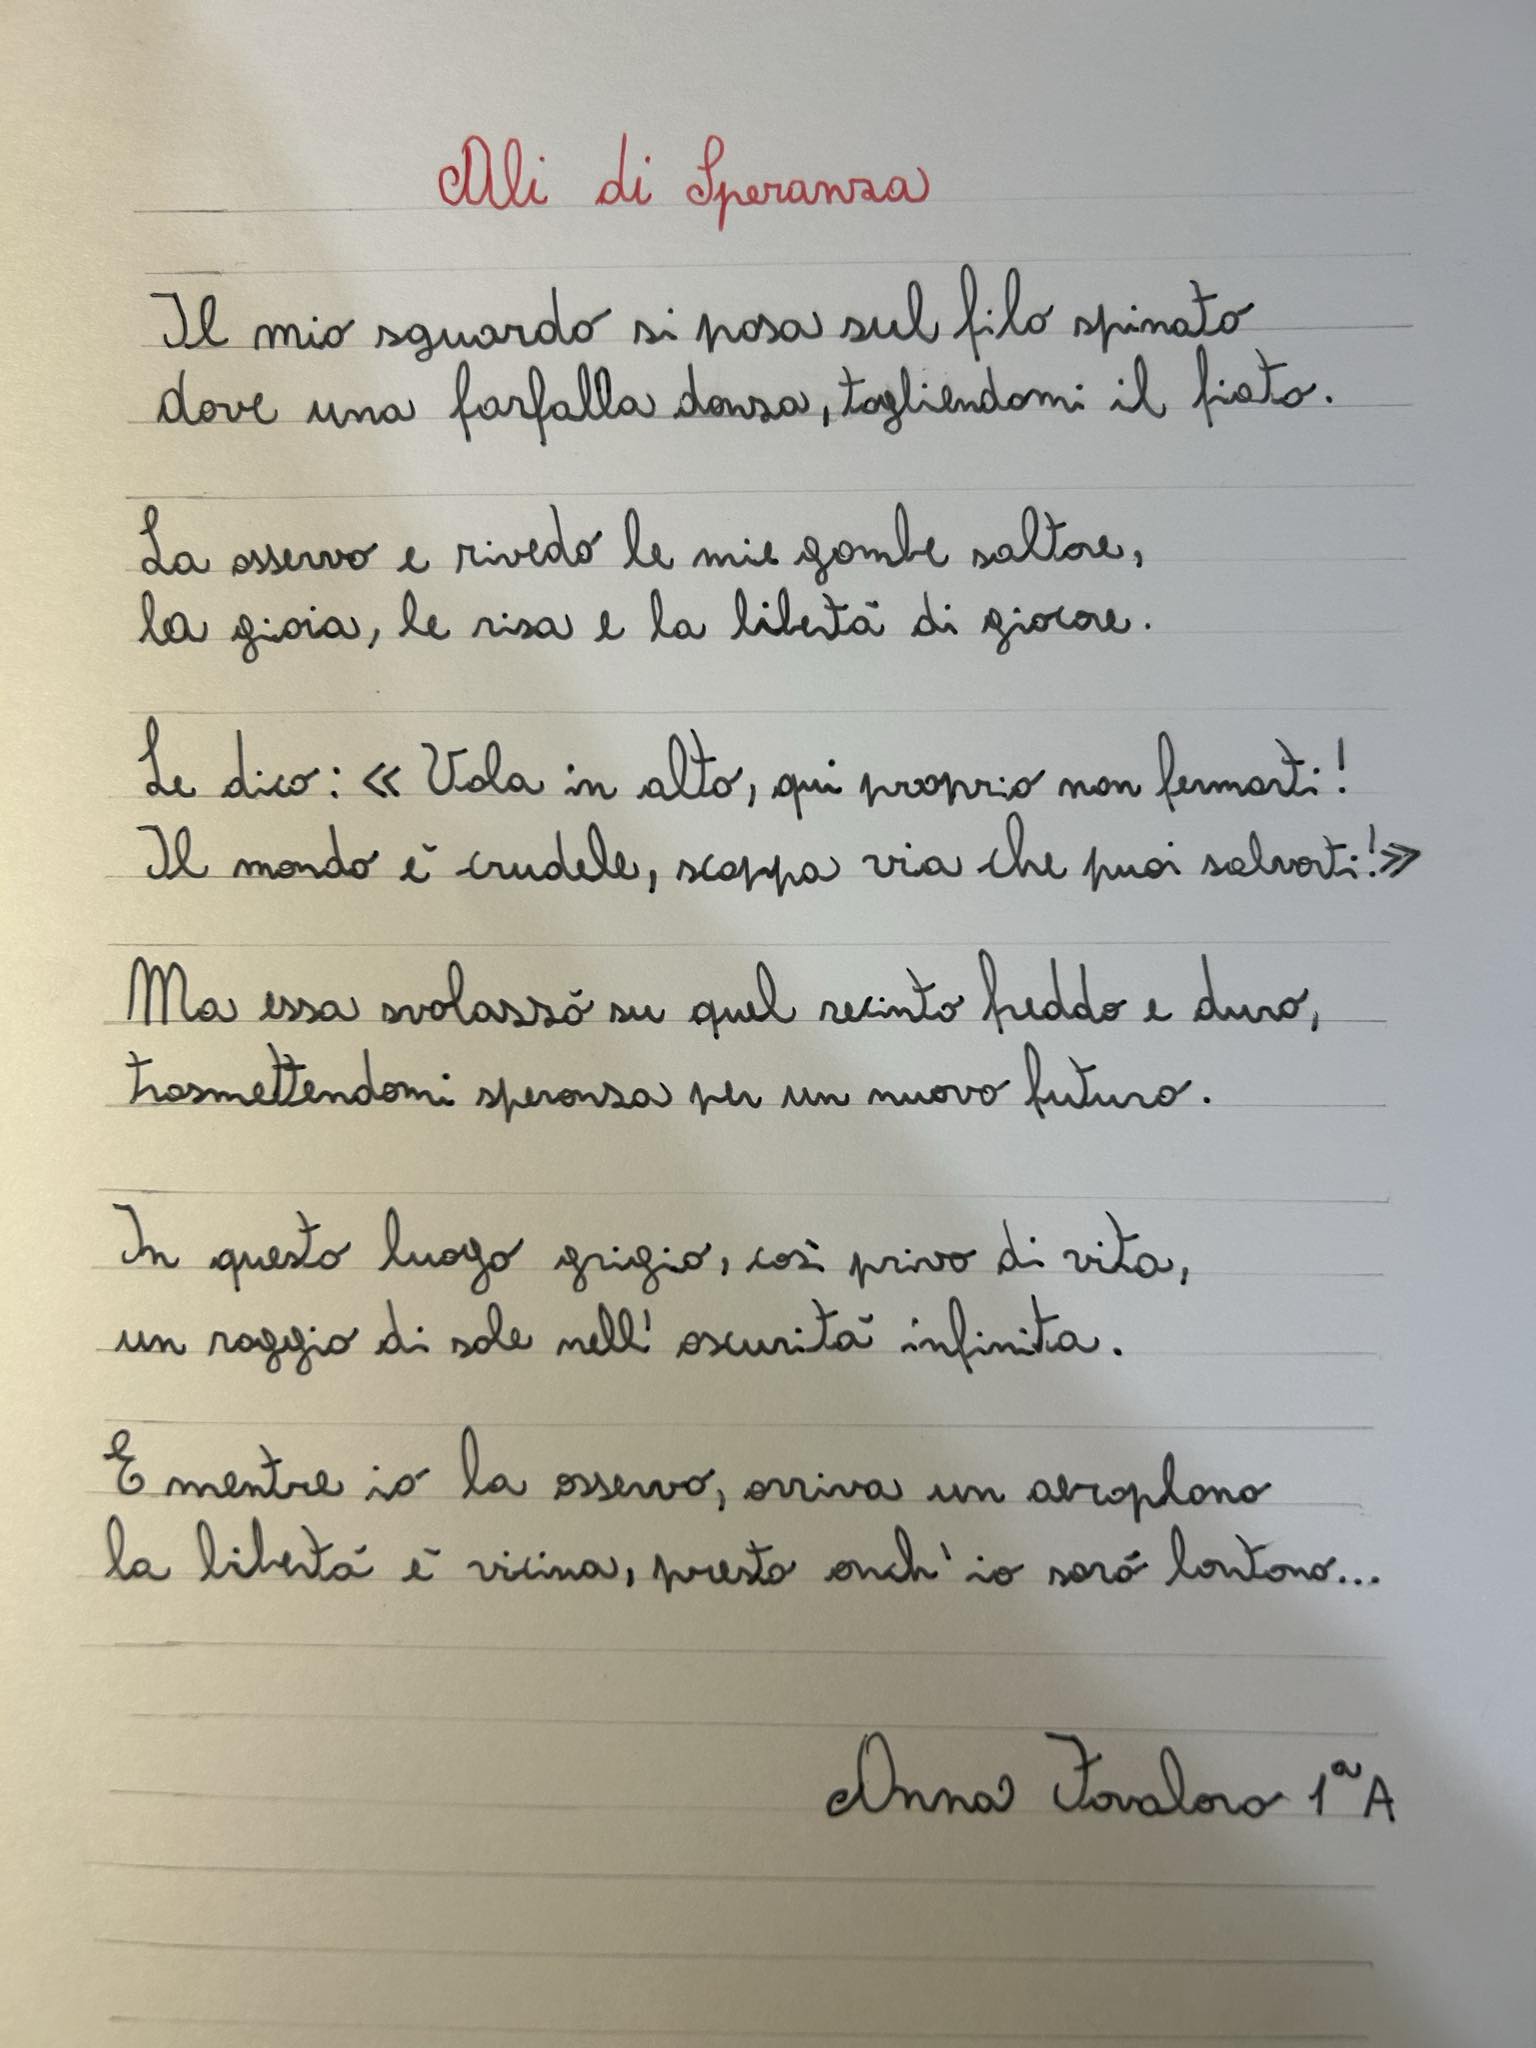 Ali di Speranza
Il mio sguardo si posa sul filo spinato
dove una farfalla danza, togliendomi il fiato.
La osservo e rivedo le mie gambe saltare,
la gioia, le risa e la libertà di giocare.
Le dico: « Vola in alto, qui proprio non fermarti!
Il mondo è crudele, scappa via che puoi salvarti!»
Ma essa svolazzò su quel recinto freddo e duro,
trasmettendomi speranza per un nuovo futuro.
In questo luogo grigio, così privo di vita,
un raggio di sole nell' oscurità infinita.
E mentre io la osservo, arriva un aeroplano
la libertà è vicina, presto anch' io sarò lontano...
Anna Favaloro 1ª A